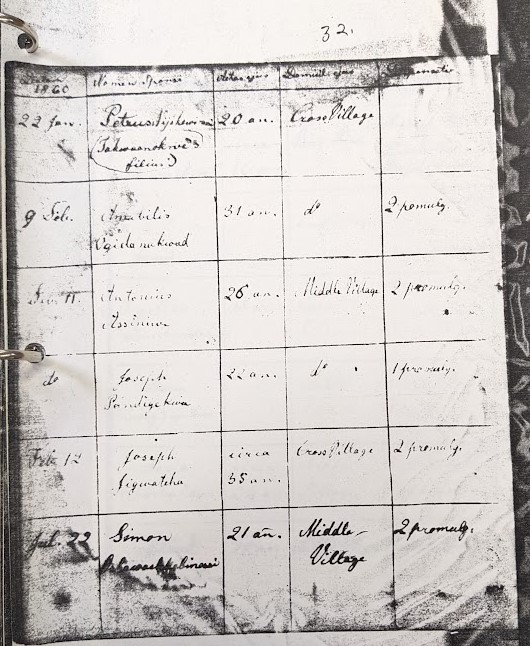 32.
1860 Nomen Sponsi Aetas ejus Domicil. ejus
22 Jan. Petrus 20 an. Cross Village
filius)
9 Feb. Amabilis 31 an. do 2 promulg.
Ogidanakwad
Feb. 11. Antonius 26 an. Middle Village 2 promulg.
Assiniwe
do Joseph 22 an. do 1 promulg.
Feb. 12 Joseph circa Cross Village 2 promulg.
Jigwatcha 35 an.
Jul. 22 Simon 21 añ. Middle- 2 promulg.
Village